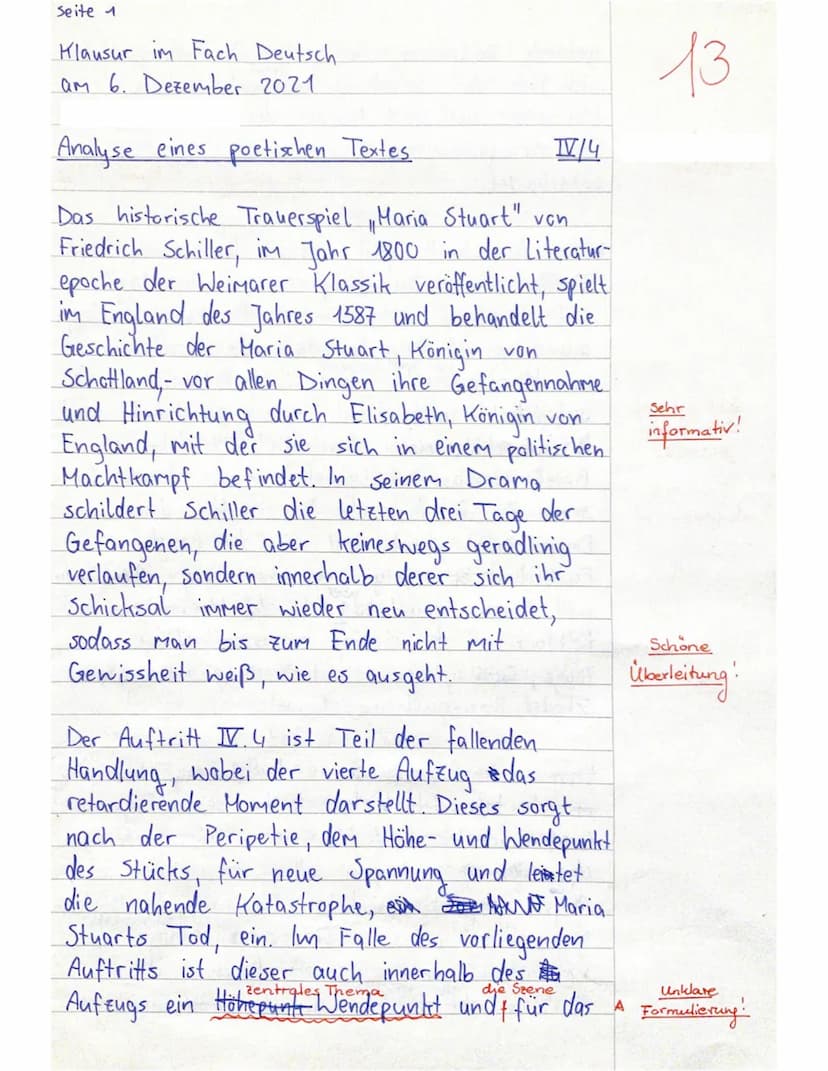 Seite 1
Klausur im Fach Deutsch
am 6. Dezember 2021
13
Analyse eines poetischen Textes IV/4
Das historische Trauerspiel „Maria Stuart" von
Friedrich Schiller, im Jahr 1800 in der Literatur-
epoche der Weimarer Klassik veröffentlicht, spielt
im England des Jahres 1587 und behandelt die
Geschichte der Maria Stuart, Königin von
Schottland,- vor allen Dingen ihre Gefangennahme
und Hinrichtung durch Elisabeth, Königin von
Sehr
informativ!
England, mit der sie sich in einem politischen
Machtkampf befindet. In seinem Drama
schildert Schiller die letzten drei Tage der
Gefangenen, die aber keineswegs geradlinig
verlaufen, sondern innerhalb derer sich ihr
Schicksal immer wieder neu entscheidet,
sodass man bis zum Ende nicht mit
Schöne
Überleitung!
Gewissheit weiß, wie es ausgeht.
Der Auftritt IV.4 ist Teil der fallenden
Handlung, wobei der vierte Aufzug das
retardierende Moment darstellt. Dieses sorgt
nach der Peripetie, dem Höhe- und Wendepunkt
des Stücks, für neue Spannung und leitet
die nahende Katastrophe, ein Maria
Stuarts Tod, ein. Im Falle des vorliegenden
Auftritts ist dieser auch innerhalb des
zentrales Thema die Szene
Aufzugs ein Höhepunkt Wendepunkt und für das
A Unklare
Formulierung!